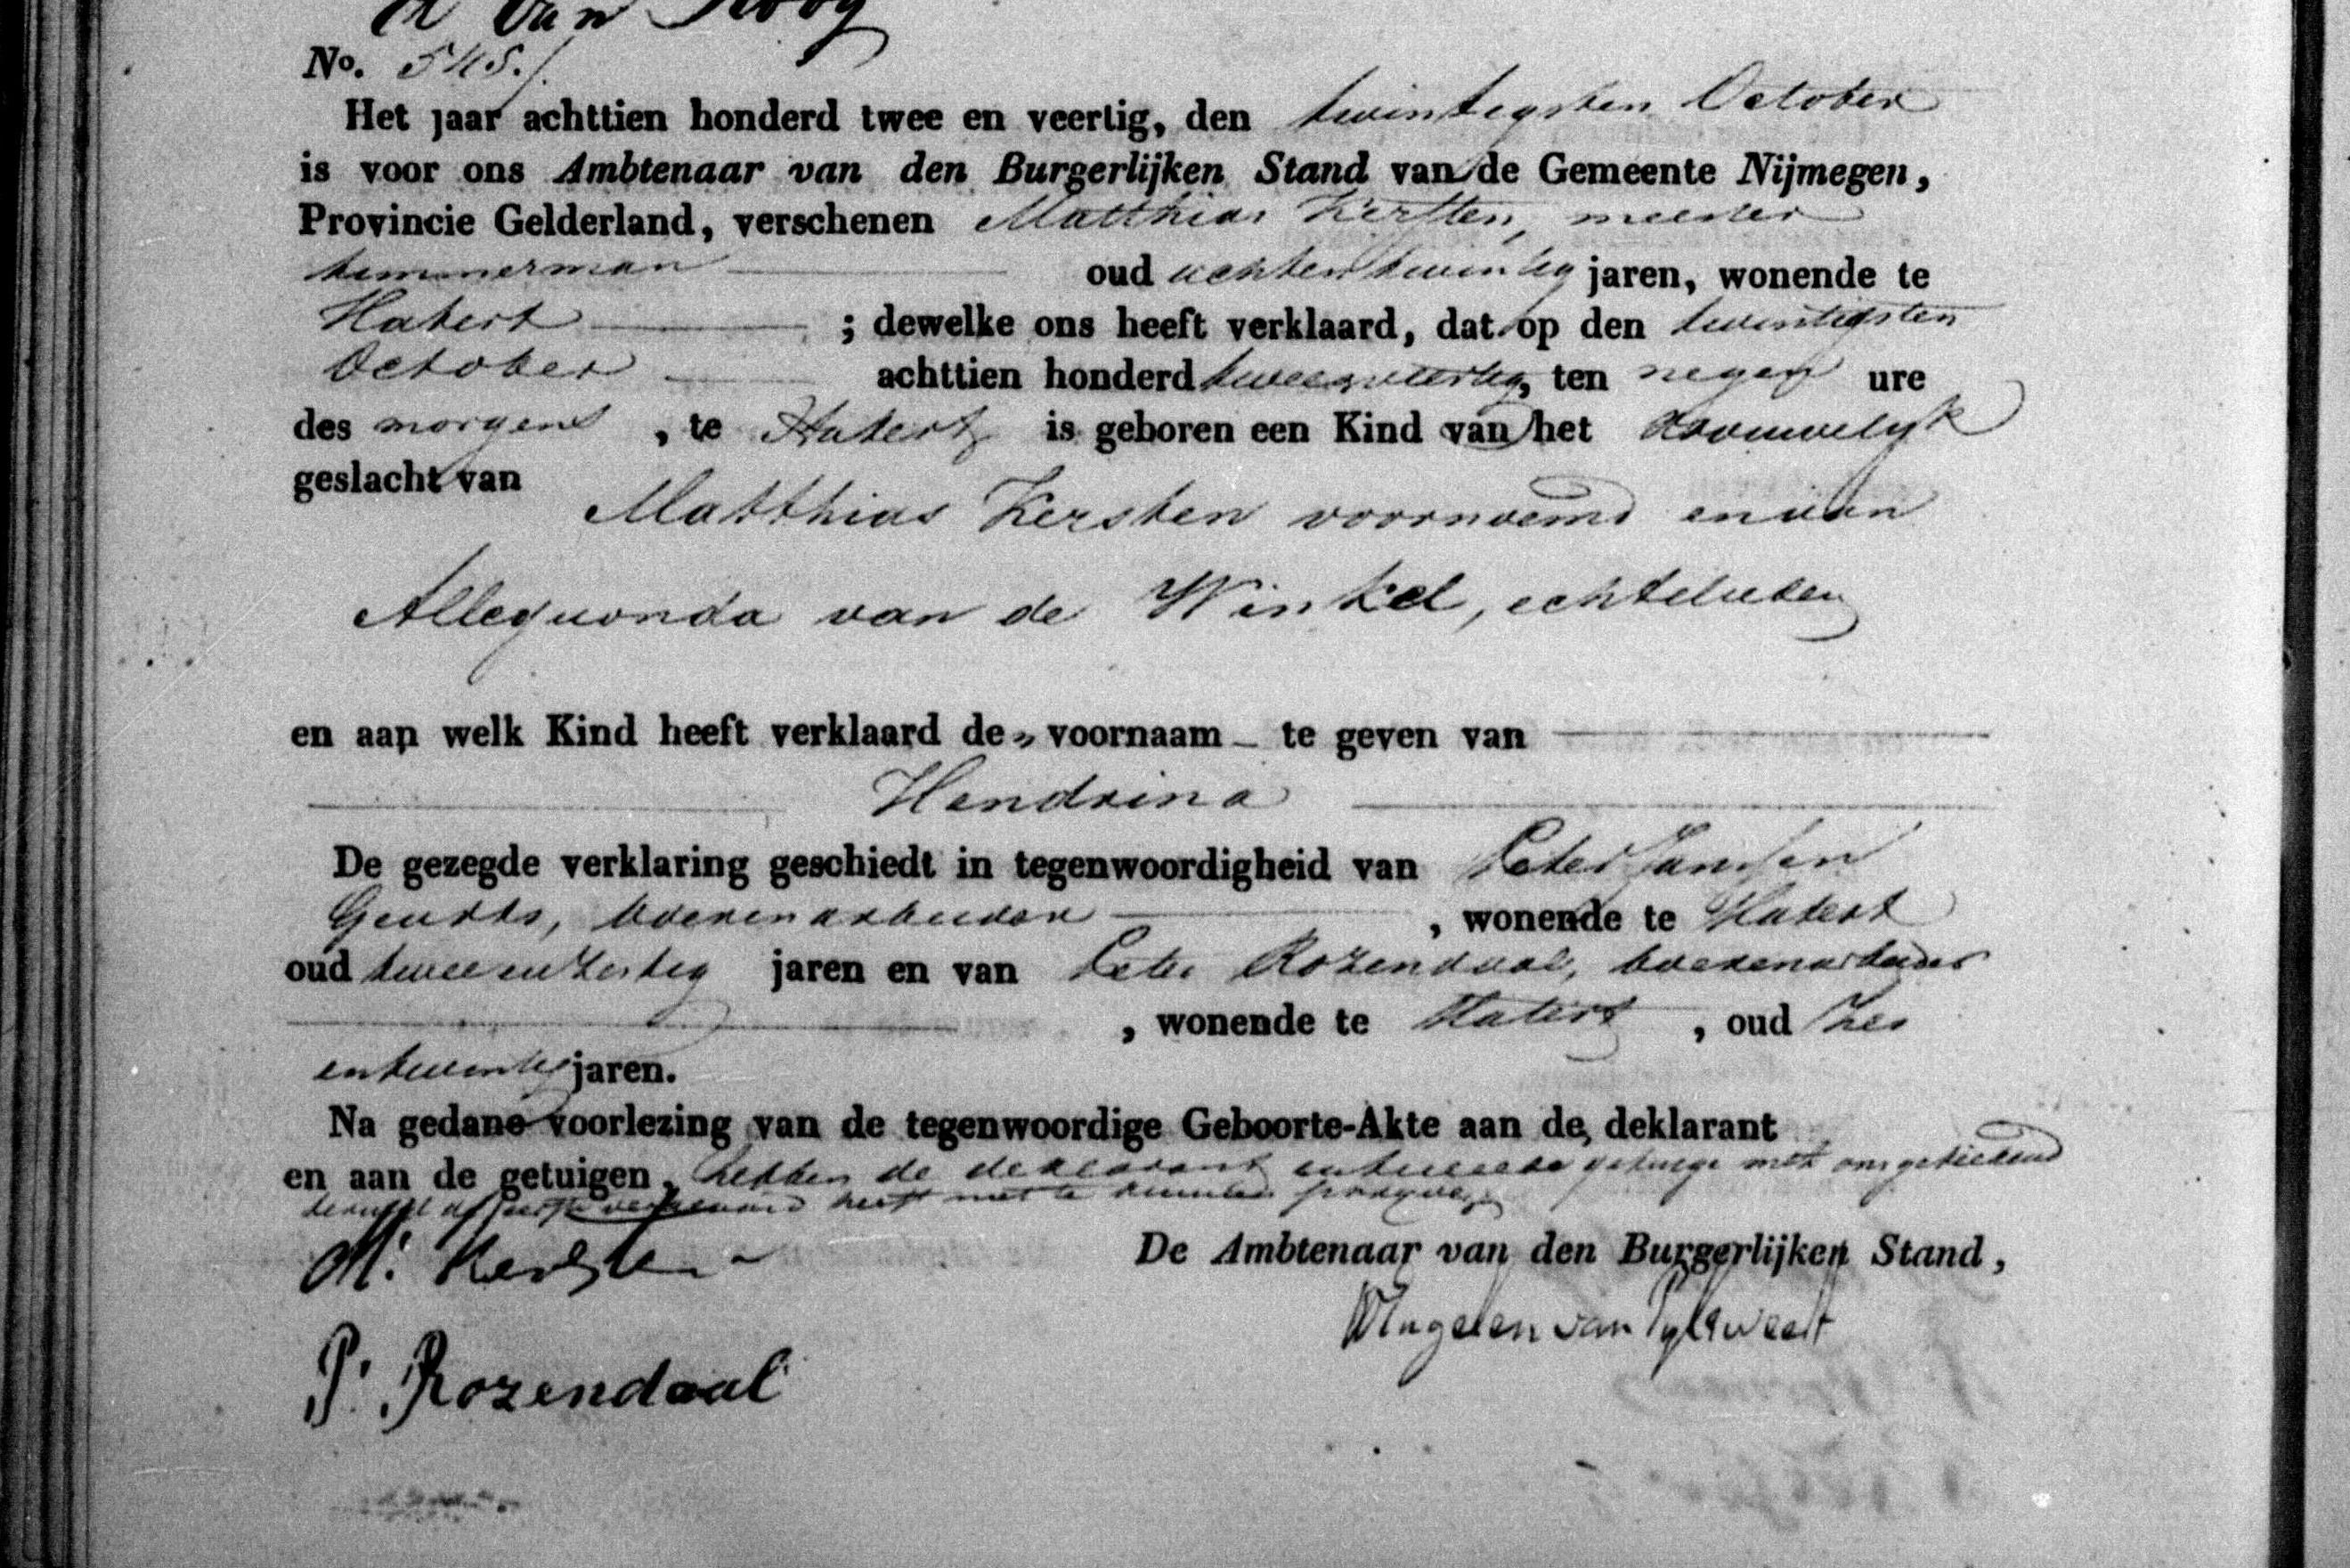 van Rooy
No. 545.
Het jaar achttien honderd twee en veertig, den twintigsten October
is voor ons Ambtenaar van den Burgerlijken Stand van de Gemeente Nijmegen,
Provincie Gelderland, verschenen Matthias Kersten, meester
timmerman oud achtentwintig jaren, wonende te
Hatert ; dewelke ons heeft verklaard, dat op den twintigsten
October achttien honderd tweeenveertig, ten negen ure
des morgens , te Hatert is geboren een Kind van het vrouwelijk
geslacht van
Matthias Kersten voornoemd en van
Allegonda van de Winkel, echtelieden
en aan welk Kind heeft verklaard de voornaam te geven van
Hendrina
De gezegde verklaring geschiedt in tegenwoordigheid van Peter Janssen
Geurts, boerenarbeider , wonende te Hatert
oud twee en zestig jaren en van Peter Rozendaal, boerenarbeider
, wonende te Hatert , oud zes
entwintig jaren.
Na gedane voorlezing van de tegenwoordige Geboorte-Akte aan de, deklarant
en aan de getuigen, hebben de deklarant en tweede getuige met ons geteekend
verklaard heeft niet te kunnen
M. Kersten
De Ambtenaar van den Burgerlijken Stand,
Engelen van Pylsweert
P. Rozendaal